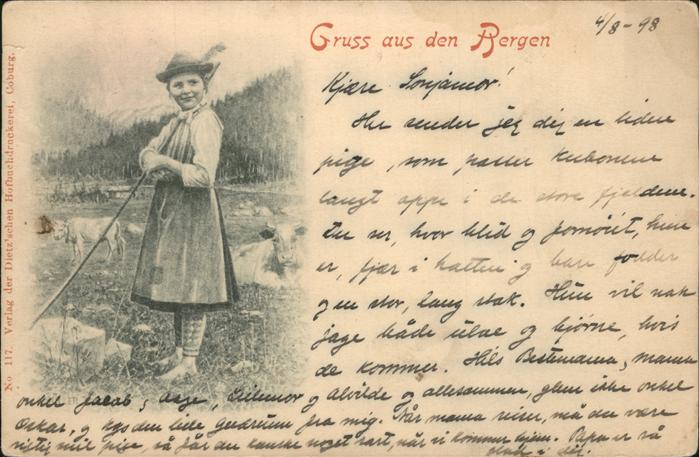 Gruss aus den Bergen
4/8-98
No 117. Verlag der Dietz'schen Hofbuchdruckerei, Coburg.
Kjære Sonjamor!
Her sender jeg dig en liden
pige, som passer kuboerne
langt oppe i de store fjeldene.
Du ser, hvor blid og fornøiet, hun
er, fjær i hatten og bare fødder
og en stor, lang stak. Hun vil nok
jage både ulve og bjørne, hvis
de kommer. Hils Bestemama, mama
onkel Jacob, Aage, Lillemor og Alvilde og allesammen, glem ikke onkel
Oskar, og kys den lille fra mig. Når mama reiser, må du være
rigtig snil pige, så får du kanske noget rart, når vi kommer hjem. Papa er så
glad i dig.